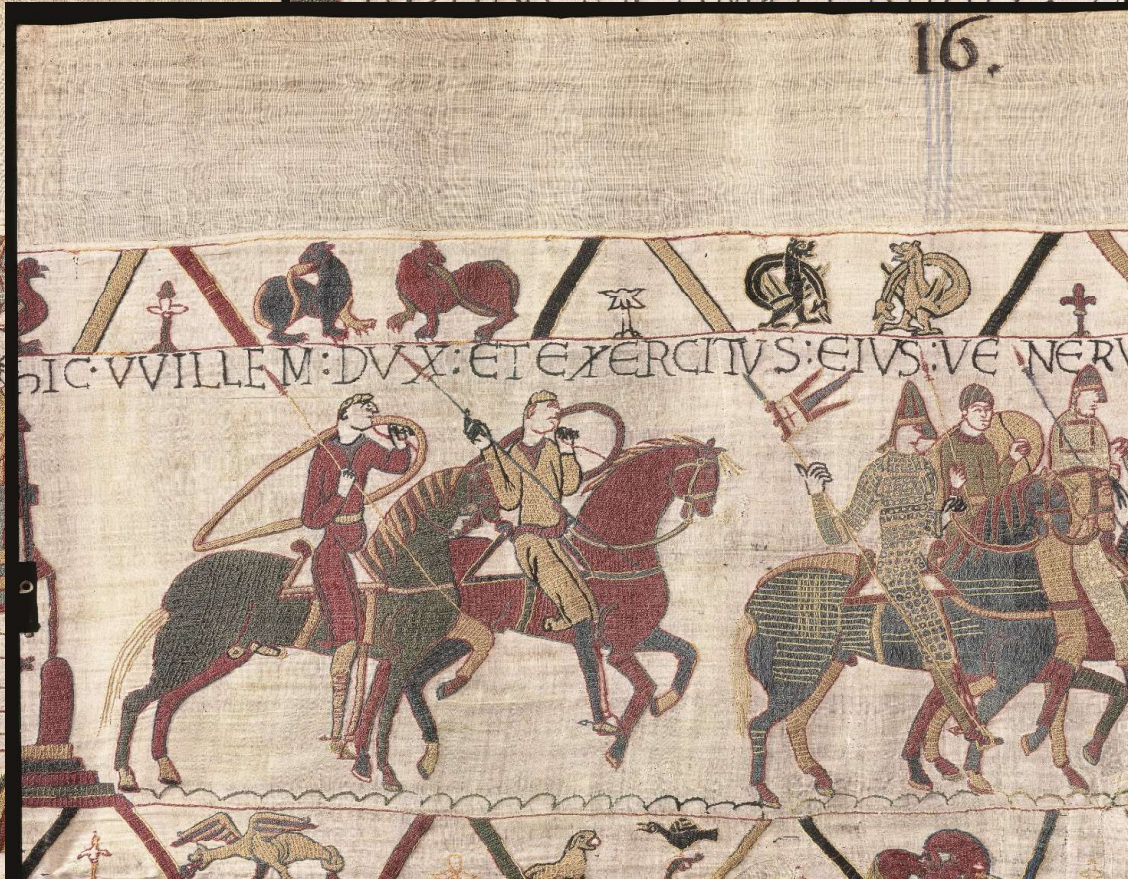 16.
hIC·VVILLEM:DVX:ET EXERCITVS:EIVS:VE NERV